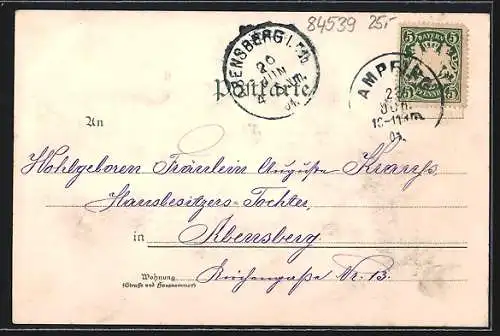 84539 25,-
ABENSBERG I. Ndb.
20
JUN
01.
BAYERN
5 5
PFENNIG
AMPFING
JUN.
01
Postkarte
An
Wohlgeboren Fräulein Auguste Krauss
Hausbesitzers-Tochter,
in Abensberg
Wohnung
(Straße und Hausnummer)
Kirchengasse Nr. 13.